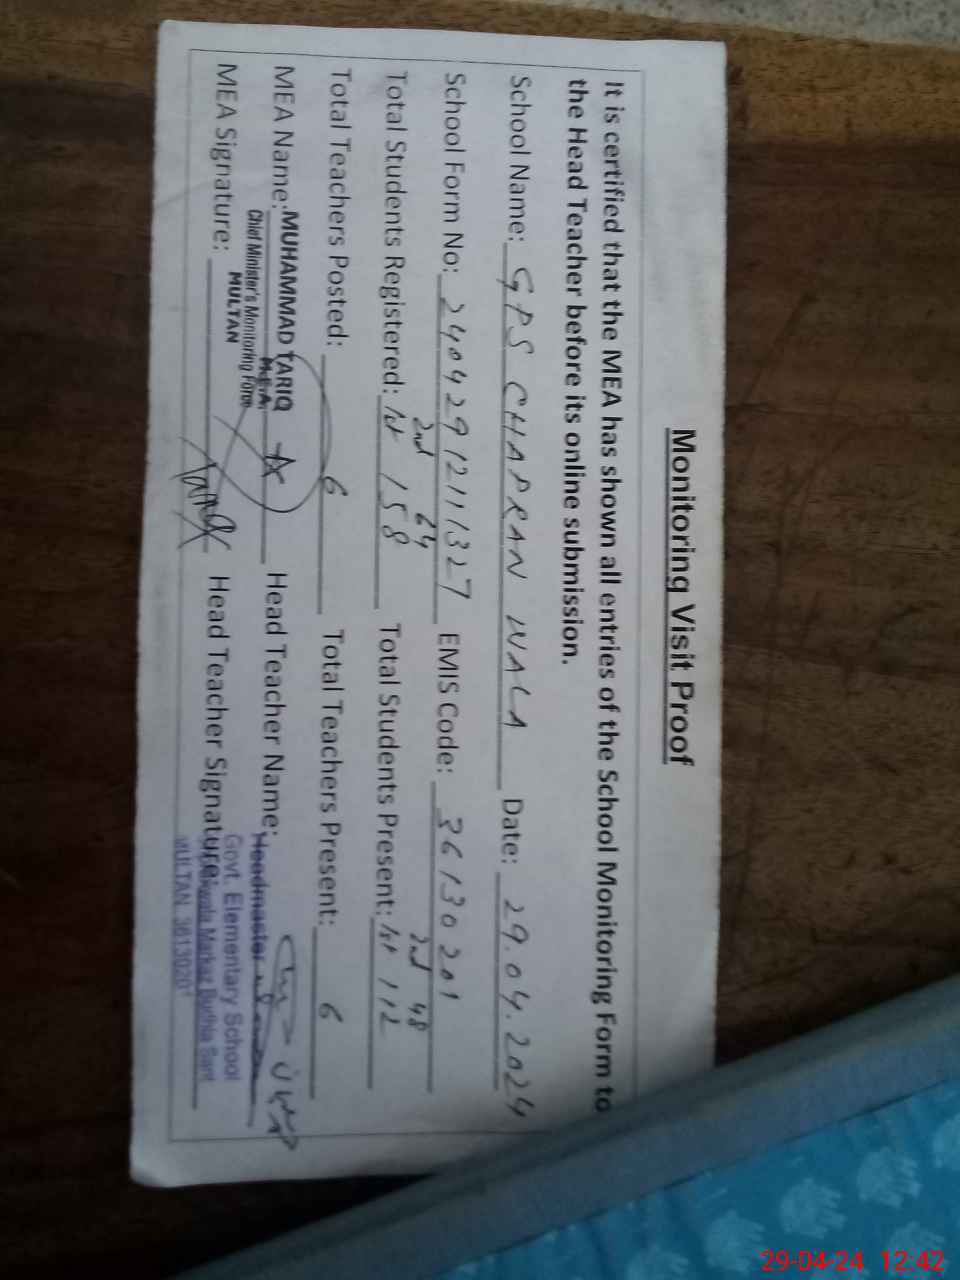 Monitoring Visit Proof
It is certified that the MEA has shown all entries of the School Monitoring Form to
the Head Teacher before its online submission.
School Name: GPS CHAPRAN WALA Date: 29.04.2024
School Form No: 24042912111327 EMIS Code: 36130201
2nd 64 2nd 48
Total Students Registered: 1st 158 Total Students Present: 1st 112
Total Teachers Posted: 6 Total Teachers Present: 6
MEA Name: MUHAMMAD TARIQ Head Teacher Name:
M.E.A.
Chief Minister's Monitoring Force
MULTAN
Headmaster
Govt. Elementary School
MEA Signature: Head Teacher Signature:
Markaz Buthla Sant
MULTAN 36130201
29-04-24 12:42